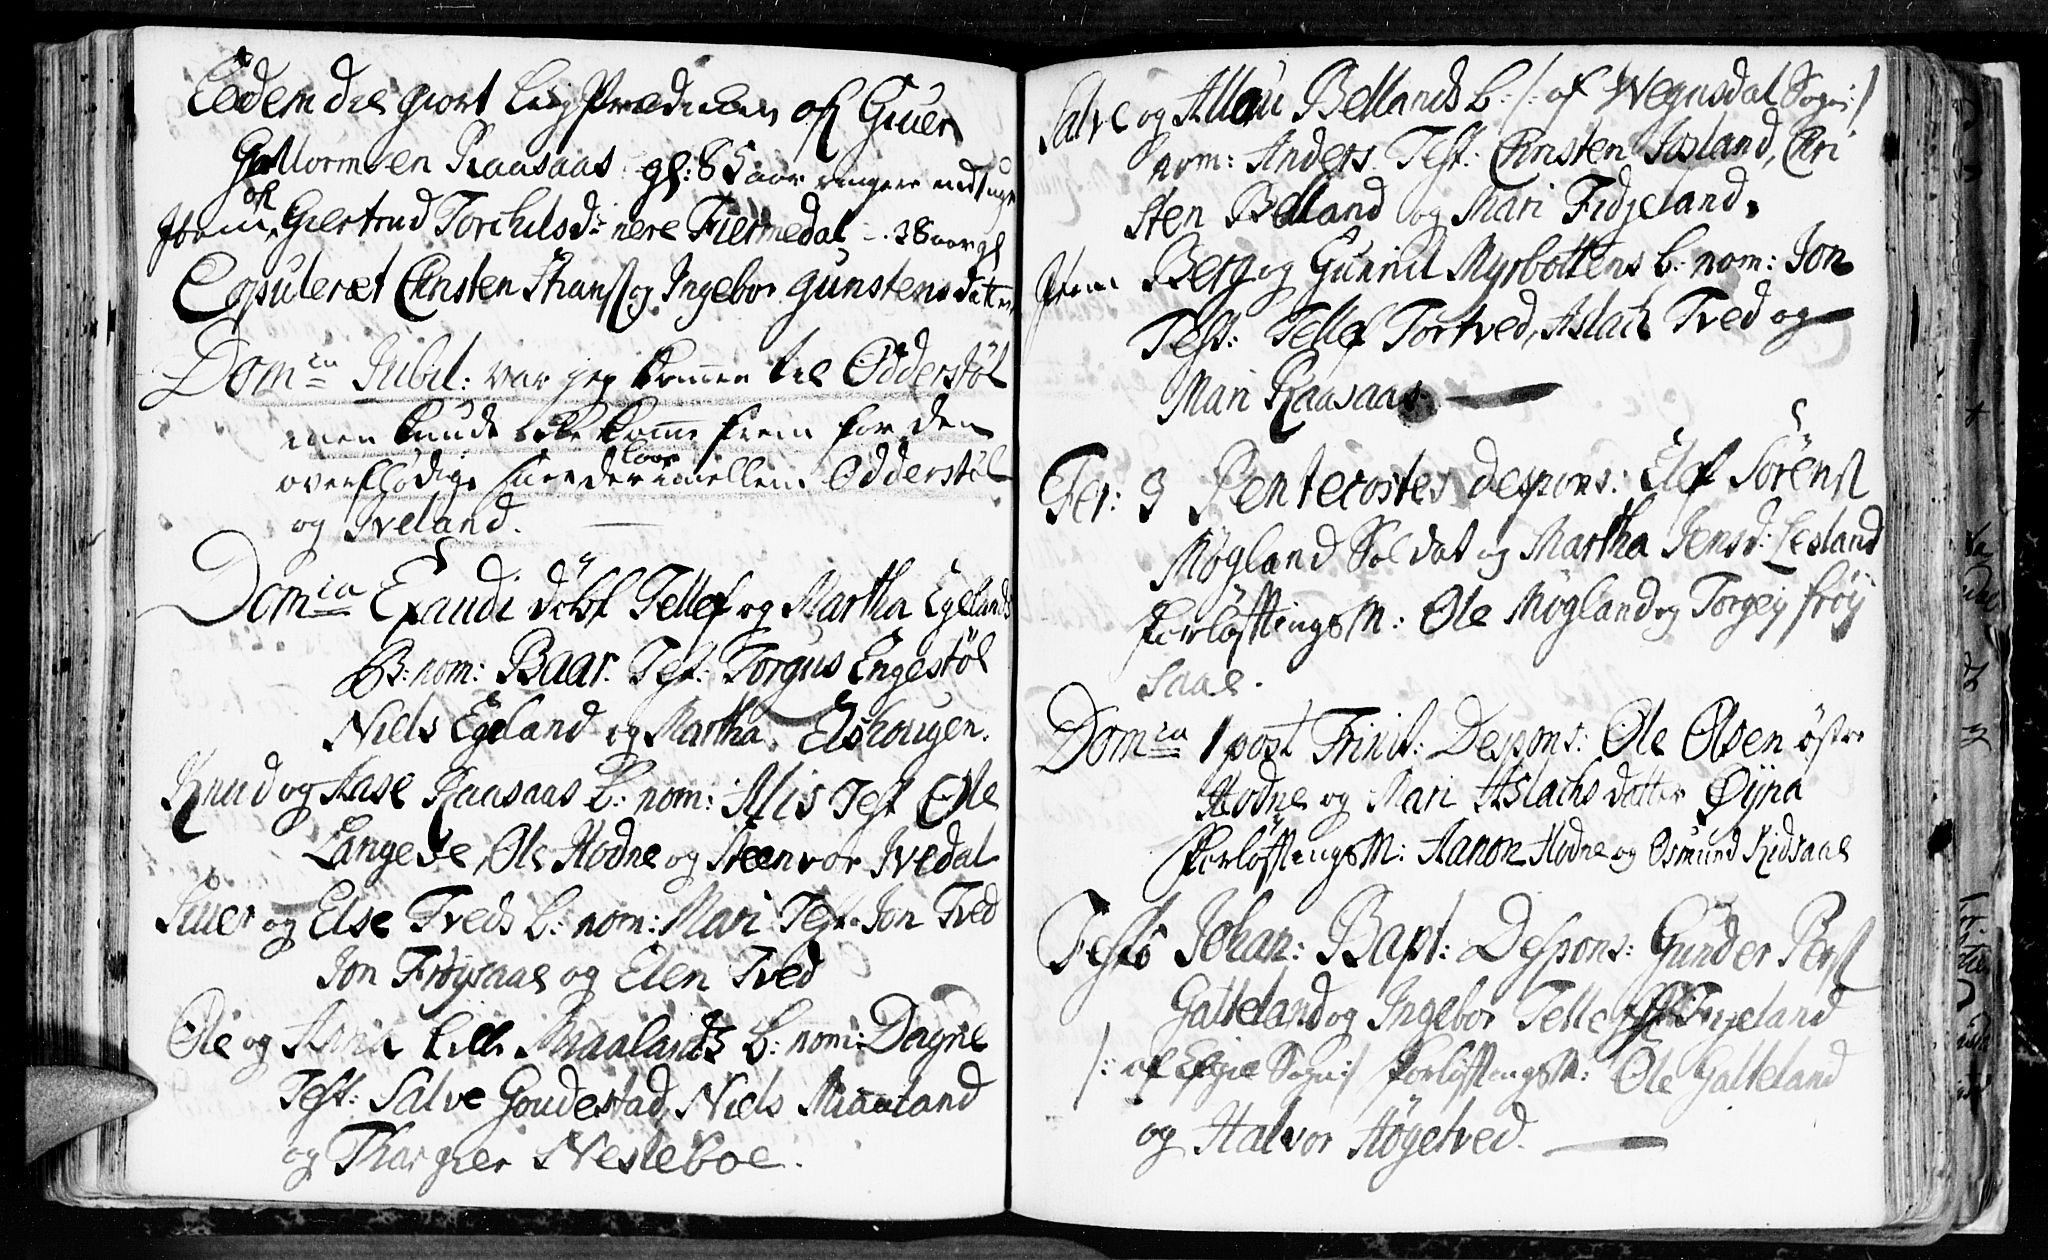 Eodem die giort Liig Prædiken of Giuer
Guttormsen Raasaas gl: 85 aar
Item of Giertrud Torchilsd: nere Fiermedal 28 aar gl
Copuleret Christen Hans og Ingebor Gunstensdatter
Dom:ca Jubil: var jeg kommen til Odderstøl
men kunde icke komme frem for den
overflødige der imellem Odderstøl
og Iveland.
Dom:ca Exaudi döbt Tellef og Martha Egelands
B: nom: Baar. Test: Torgus Engestøl
Niels Egeland og Martha Elshougen.
Knud og Aase Raasaas b: nom: Alis Test Ole
Langerde, Ole Hodne og Steenvor Ivedal
Siuer og Else Tveds b: nom: Mari Test: Jon Tved
Jon Frøysaae og Elen Tved
Ole og Lille Maalands b: nom: Dagne
Test: Salve Goudestad, Niels Maaland
og Thargier Nesleboe.
Salve og Bellands b: /: af Wegusdal Sogn :/
nom: Anders Test: Christen Iosland, Chri
sten Belland og Mari Fidjeland.
Item Berg og Gunnil Myrbottens b: nom: Jon
Test: Tellef Tortved, Aslach Tved og
Mari Raasaas
Fer: 3 Pentecostes Despons: Elef Sörens
Møgland Soldat og Martha Jensd: Lesland
ForløftningsM: Ole Møgland og Torgey Frøy
saae.
Dom:ca 1 post Trinit: Despons: Ole Olsen östre
Hodne og Mari Aslachsdatter Øyna
ForløftningsM: Aanon Hodne og Osmund Kidsaae
Festo Johan: Bapt: Despons: Gunder Pers
Galteland og Ingebor Tellefs
/: af Sogn :/ ForløftningsM: Ole Galteland
og Halvor Høgetved.